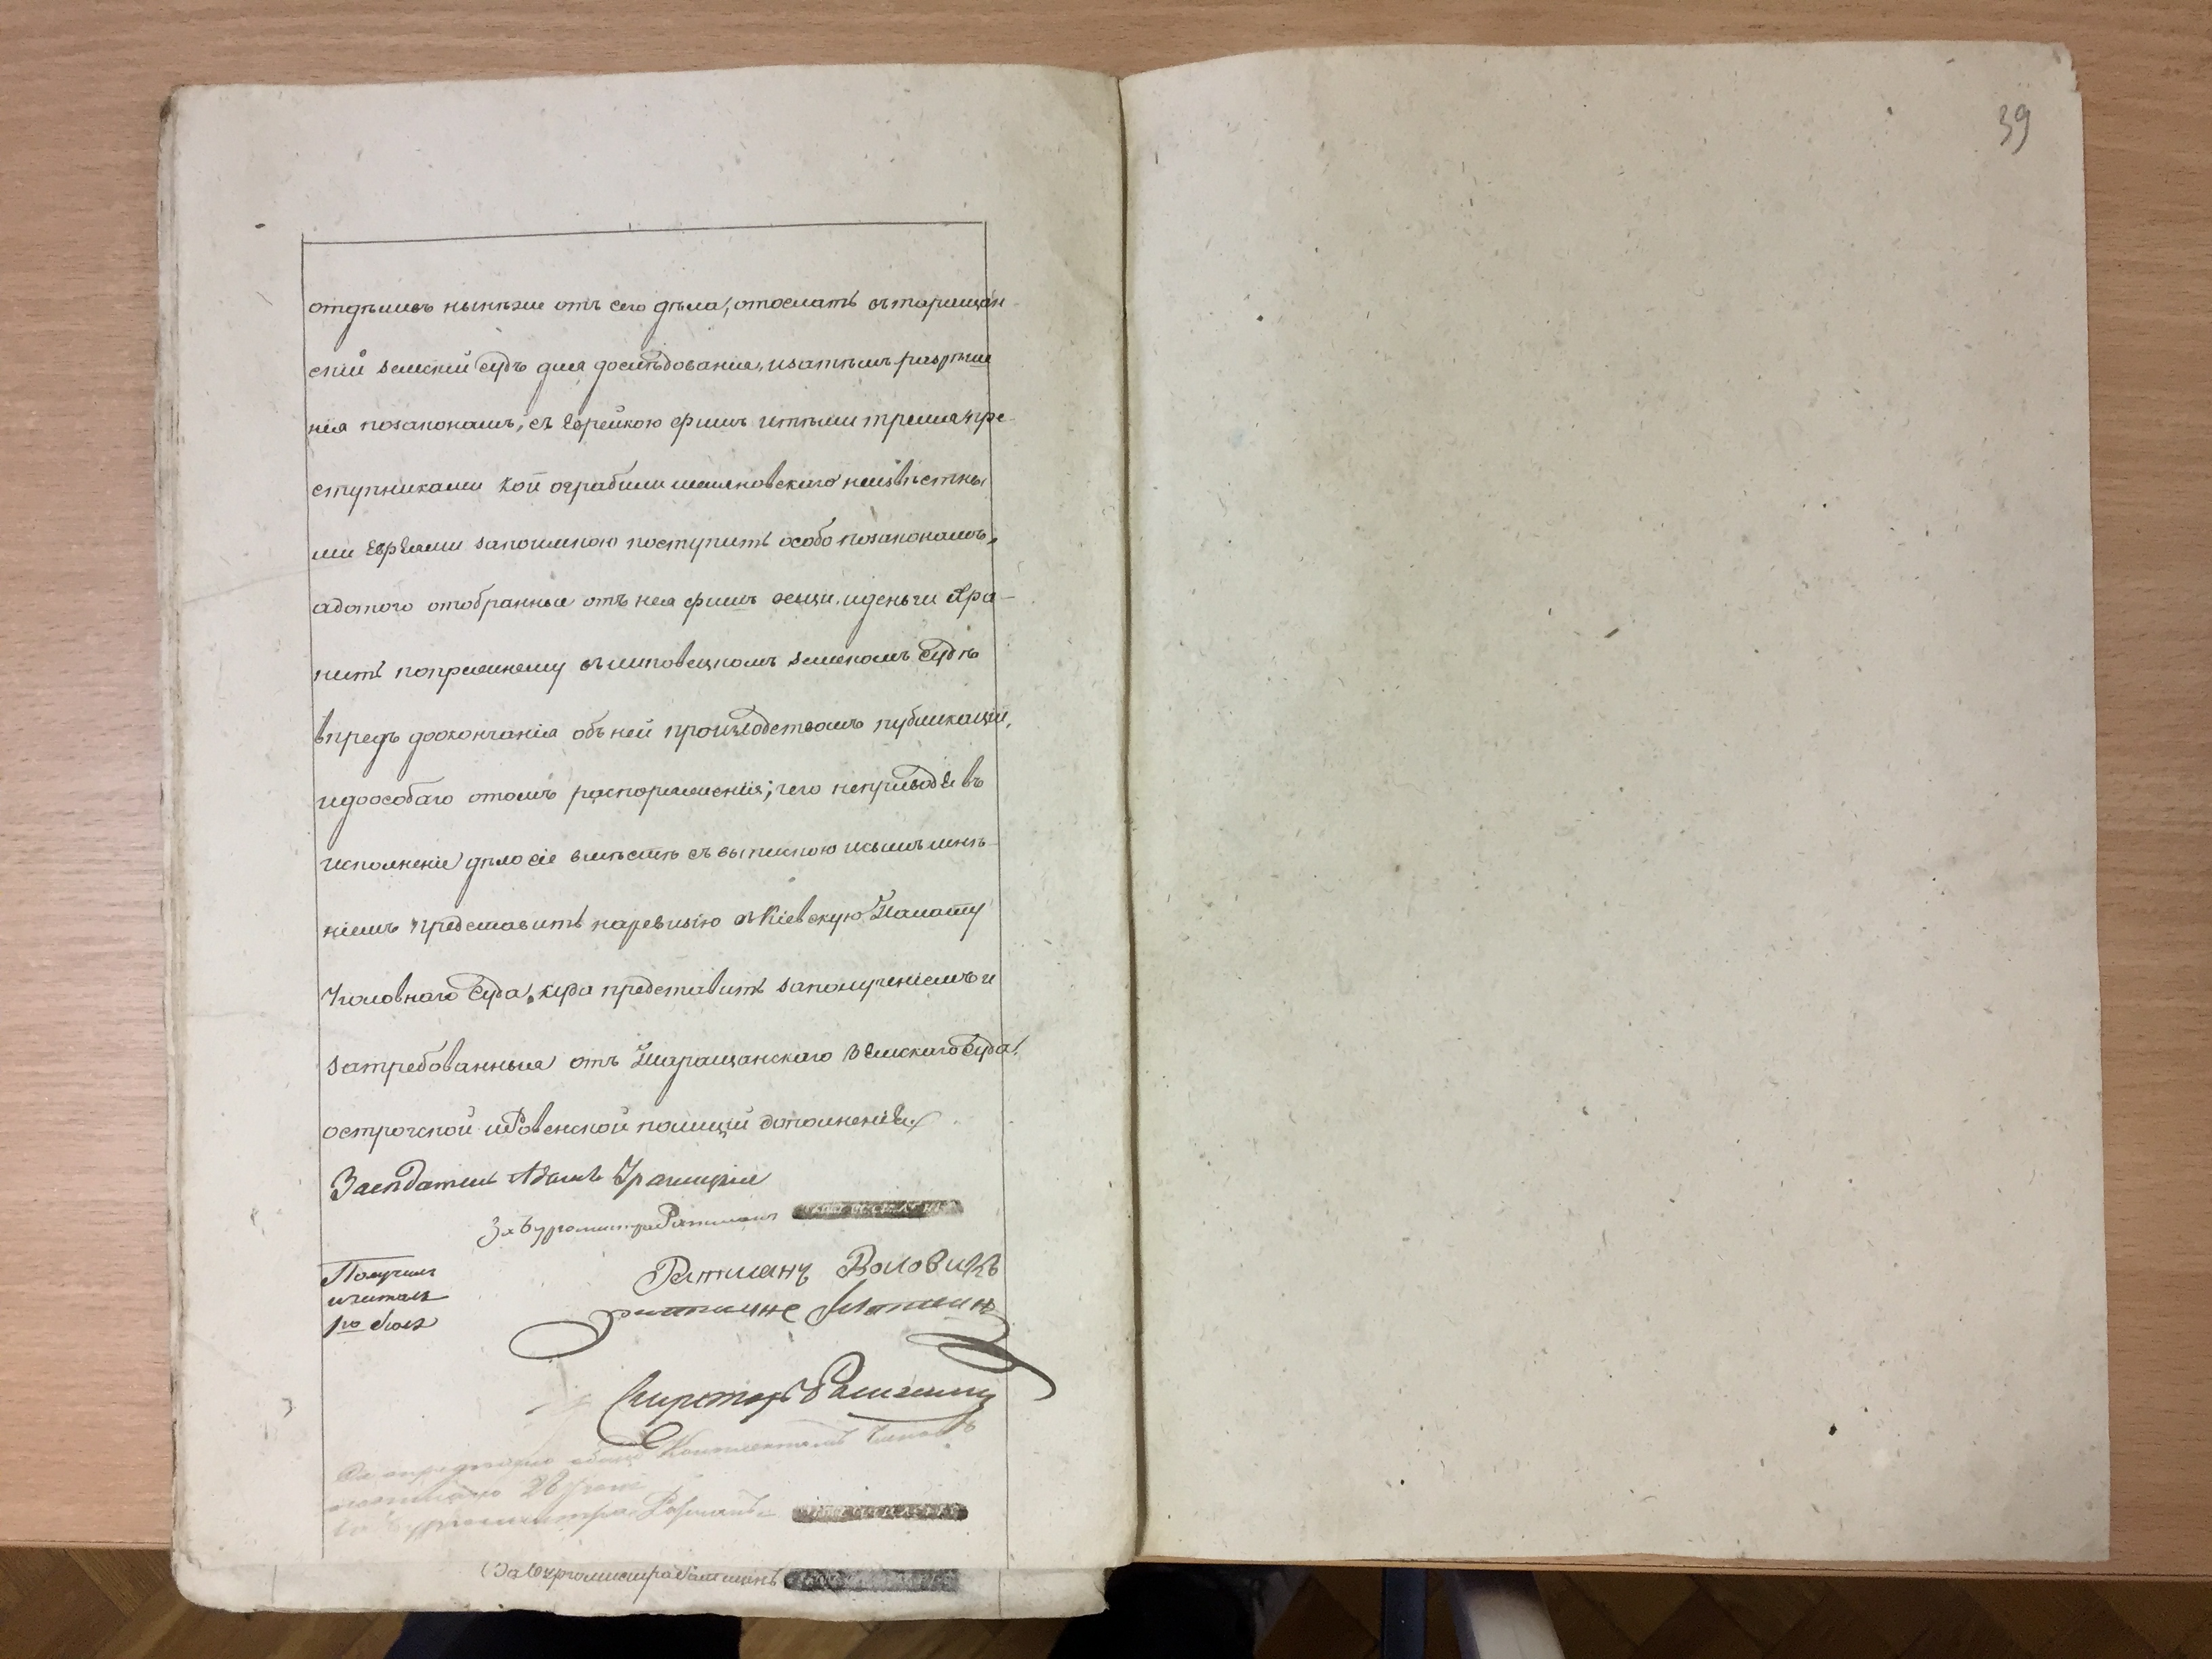 39
отдѣливъ нынѣже отъ сего дѣла, отослать въ таращан
скій земскій судъ для дослѣдованія, и затѣмъ разрѣше
нія позаконамъ, съ еврейкою фишъ и тѣми тремя пре-
ступниками кои ограбили неизвѣстны
ми евреями запоимкою поступить особо позаконамъ,
адотого отобранные отъ нея фишъ вещи и деньги хра-
нить попрежнему въ липовецкомъ земскомъ судѣ
впредь доокончанія объ ней производствомъ публикаціи,
идоособаго отомъ распоряженія; чего неприводя въ
исполненіе дѣло сіе вмѣстѣ съ выпискою исимъ мнѣ-
ніемъ представить наревизію въ Кіевскую Палату
Уголовнаго Суда, куда представить заполученіемъ и
затребованныя отъ Таращанскаго Земскаго Суда,
острогской и Ровенской полиціи дополненія.
Засѣдатель Адамъ
За бургомистра Ратманъ
Ратманъ Воловикъ
Получилъ
ичиталъ
Секретарь
28
За бургомистра Ратманъ
За бургомистра Ратманъ